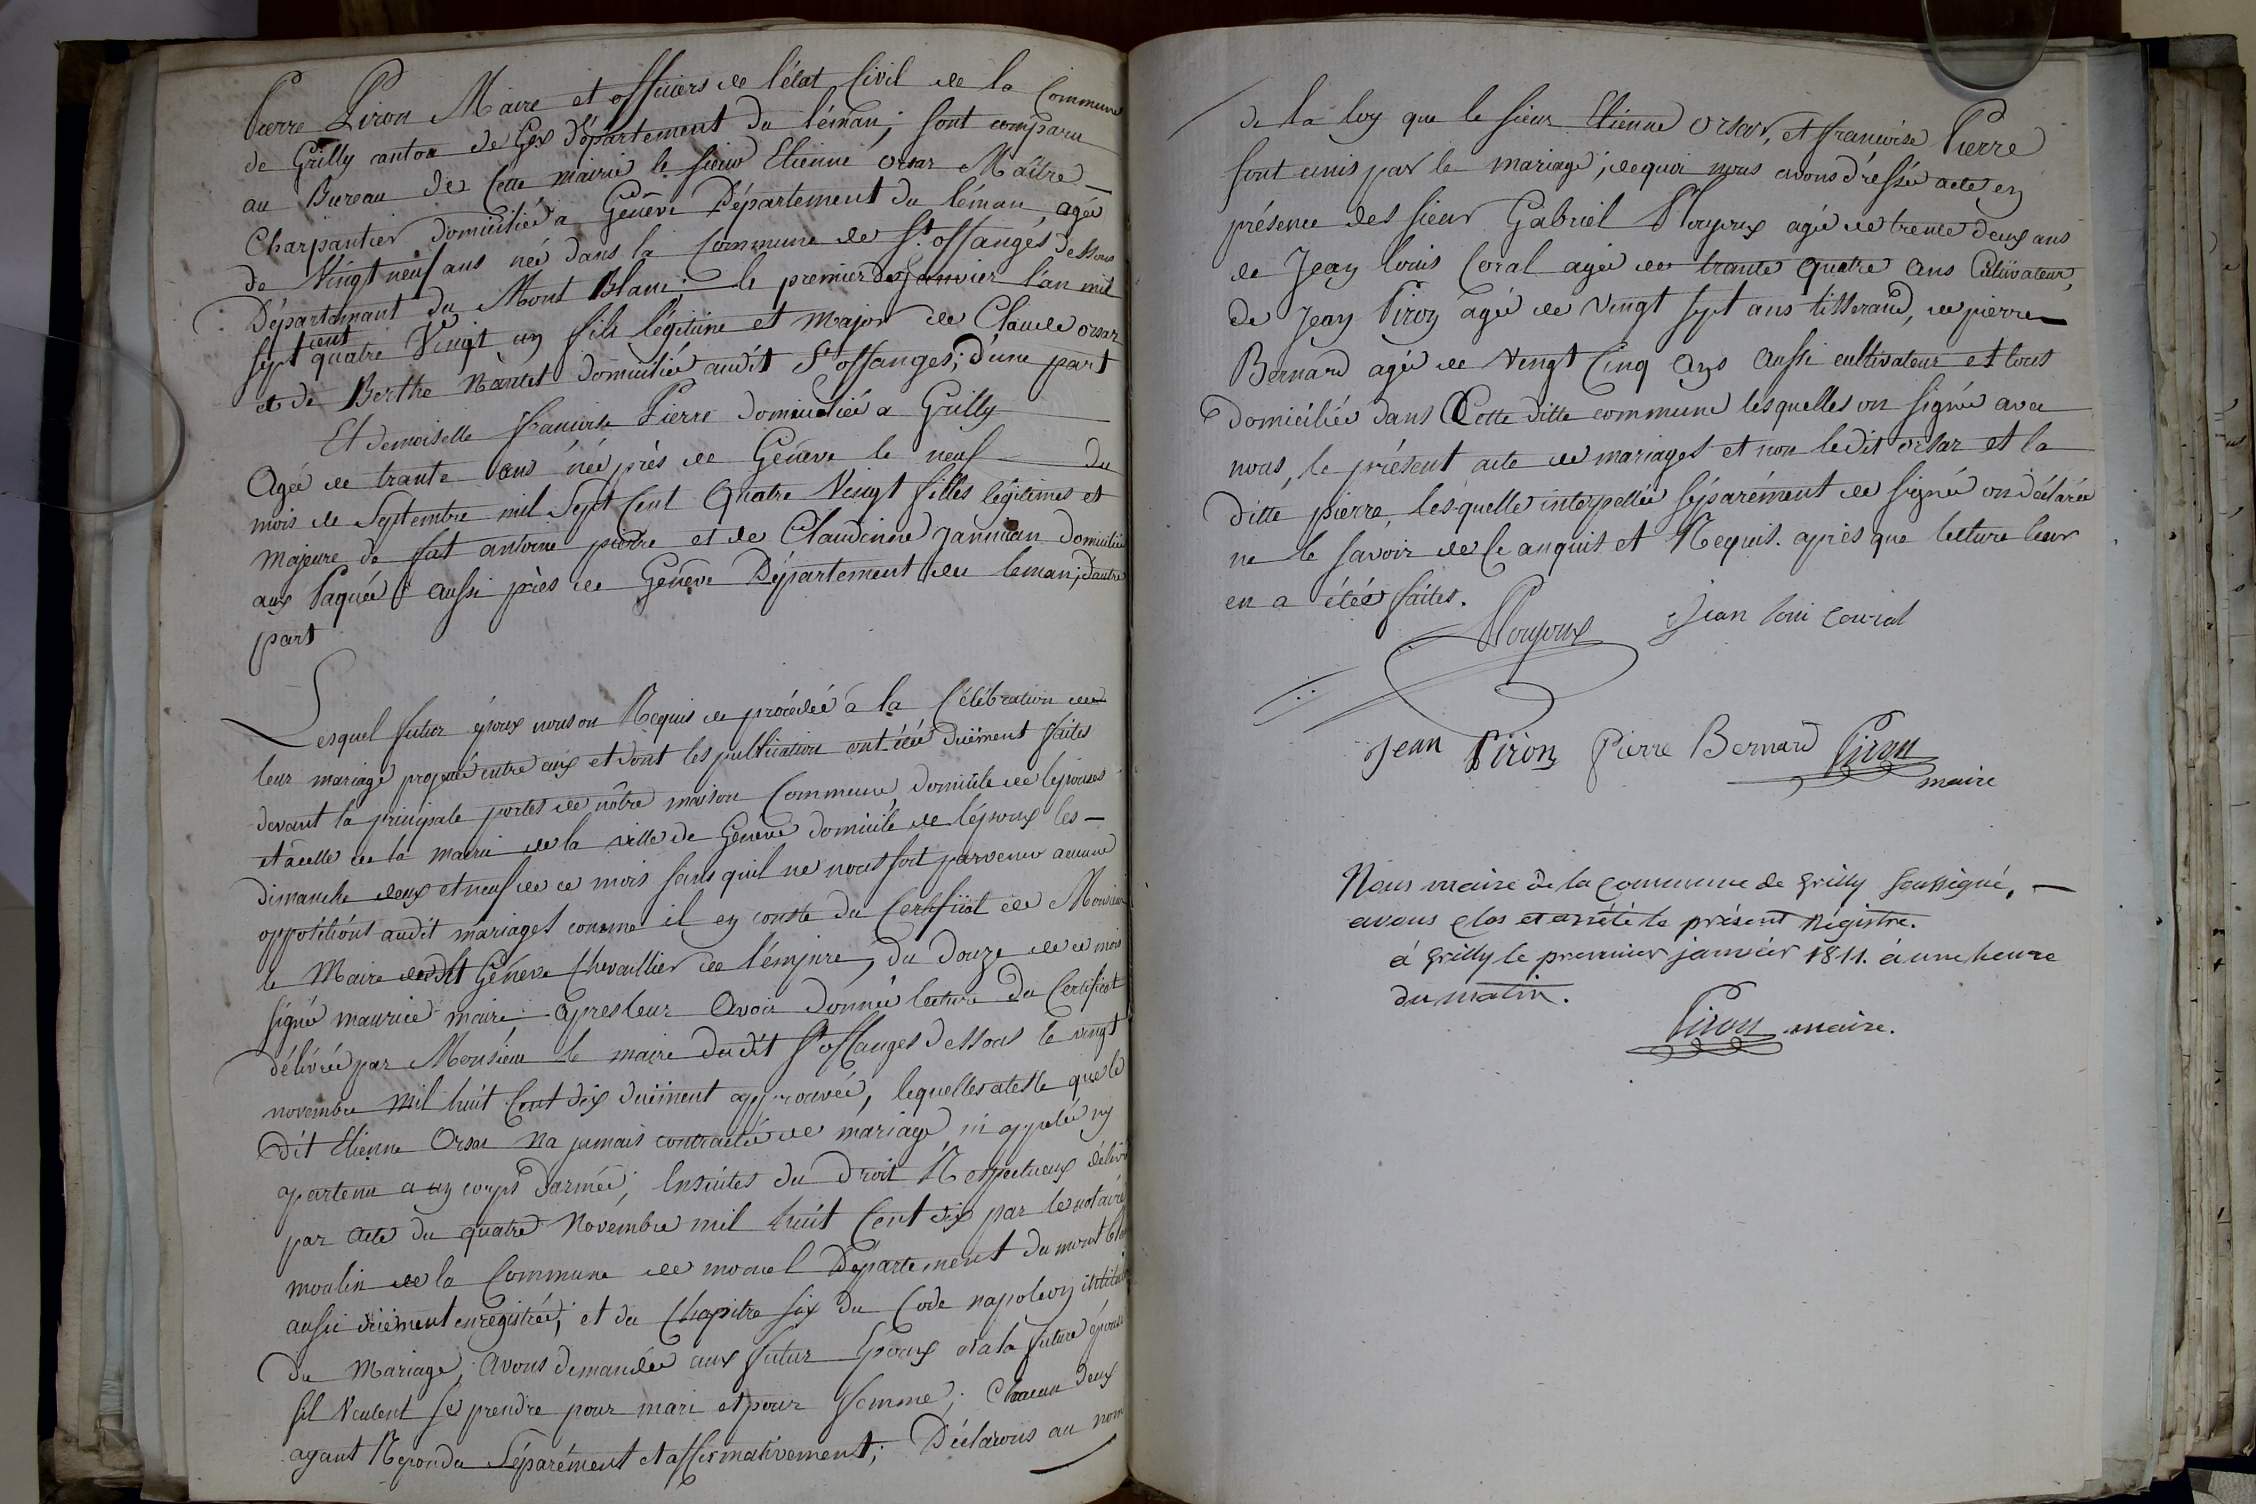 Pierre Piron Maire et officiers de l'état Civil de la Commune
de Grilly canton de Gex Département du léman; sont comparu
au Bureau de Cette mairie le sieur Etienne orsar Maître
Charpantier domicilié a Genève Département du léman, agée
de Vingt neuf ans née dans la Commune de St. offanges dessous
Département du Mont Blanc le premier de Janvier l'an mil
sept cent quatre Vingt un fils légitime et major de Claude orsar
et de Berthe Nantet domicilié audit St offanges; d'une part
Et demoiselle francoise Pierre domiciliée a Grilly
Agée de trante ans née près de Genève le neuf du
mois de Septembre mil Sept Cent Quatre Vingt filles légitimes et
majeure de fut antoine pierre et de Claudinne Jannuan domiciliée
aux Paquée aussi près de Genève Département du leman; d'autre
part
Lesquel futur époux nous on Requis de procédée a la Célébration de
leur mariage projetté entre eux et dont les publication ont été duëment faites
devant la principale portes de nôtre maison Commune domicile de lepouses
et àcelle de la mairie de la ville de Geneve domicile de l'époux les
dimanche deux et neuf de ce mois sans quil ne nous soit parvenu aucune
oppositions audit mariages comme il en conste du Certificat de Monsieur
le Maire dudit Géneve Chevaillier de l'empire, du Douze de ce mois
signé maurice maire, apres leur Avoir donnée lecture du Certificat
délivrée par Monsieur le maire dudit St offanges dessous le vingt
novembre mil huit Cent dix duëment approuvée, lequelles ateste que le
Dit Etienne Orsar na jamais contractée de mariage, ni appelée ny
apartenu a un corps d'armée; Ensuites du Droit Respectueux délivr
par acte du quatre Novembre mil huit Cent dix par le notaire
moulin de la Commune de Département du mont blan
aussi duëment enregistrée; et du Chapitre six du Code napoleon intitulé
Du Mariage, Avons demandée aux futur Epoux et a la future épouse
sil Veulent se prendre pour mari et pour femme; Chacun deux
ayant Repondu Séparément et affirmativement; Déclarons au nom
de la loy que le sieur Etienne Orsar, et francoise Pierre
sont unis par le mariage; de quoi nous avons dréssée acte en
présence des sieur Gabriel Ployoux agé de trente deux ans
de Jean louis Coral agée de trante quatre ans Cultivateur,
de Jean Piron agée de vingt sept ans tisserand, de pierre
Bernard agée de Vingt Cinq ans aussi cultivateur et tous
domiciliée dans Cette ditte commune lesquelles on signée avec
nous, le présent acte de mariages et non ledit orsar et la
ditte pierre, lesquelle interpellée séparément de signée on déclarée
ne le savoir de ce anquis et Requis. après que lecture leur
en a étée faites.
Ployoux Jean loui courial
Jean Piron Pierre Bernard Piron
maire
Nous maire de la commune de Grilly soussigné,
avons clos et arrêté le présent Régistre.
à Grilly le premier janvier 1811. à une heure
du matin.
Piron maire.